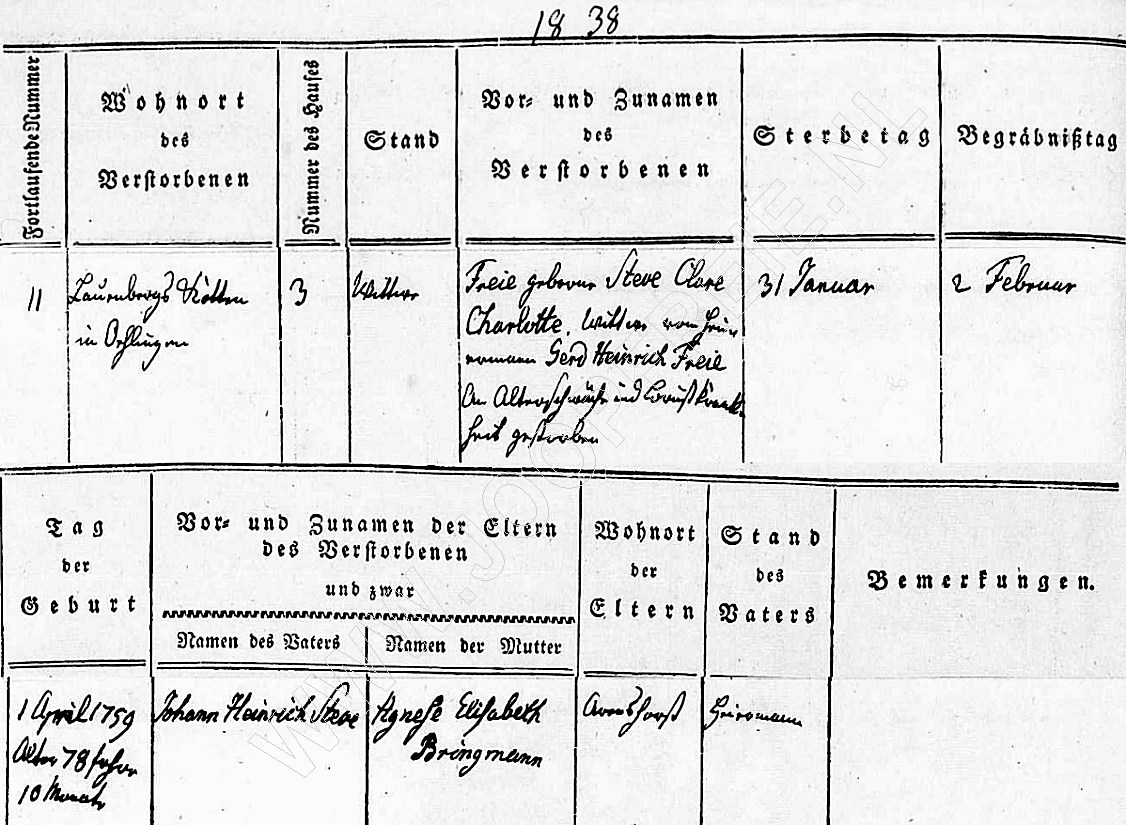 1838
Fortlaufende Nummer
Wohnort
des
Verstorbenen
Nummer des Hauses
Stand
Vor- und Zunamen
des
Verstorbenen
Sterbetag
Begräbnißtag
11
Laurenbergs Kotten
in Oehlingen
3
Wittwe
Freie geborne Steve Clare
Charlotte, Wittwe vom Heuer
ermann Gerd Heinrich Freie
An Altersschwäche und Brustkrank
heit gestorben
31 Januar
2 Februar
Tag
der
Geburt
Vor- und Zunamen der Eltern
des Verstorbenen
und zwar
Namen des Vaters
Namen der Mutter
Wohnort
der
Eltern
Stand
des
Vaters
Bemerkungen.
1 April 1759
Alter 78 Jahre
10 Monate
Johann Heinrich Steve
Agnese Elisabeth
Bringmann
Arenshorst
Heuermann